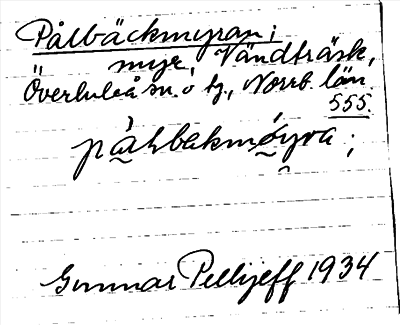 Pålbäckmyran;
myr, Vändträsk,
Överluleå sn. o tg., Norrb. län
555.
på̀lbakmǿyra;
Gunnar Pellijeff 1934